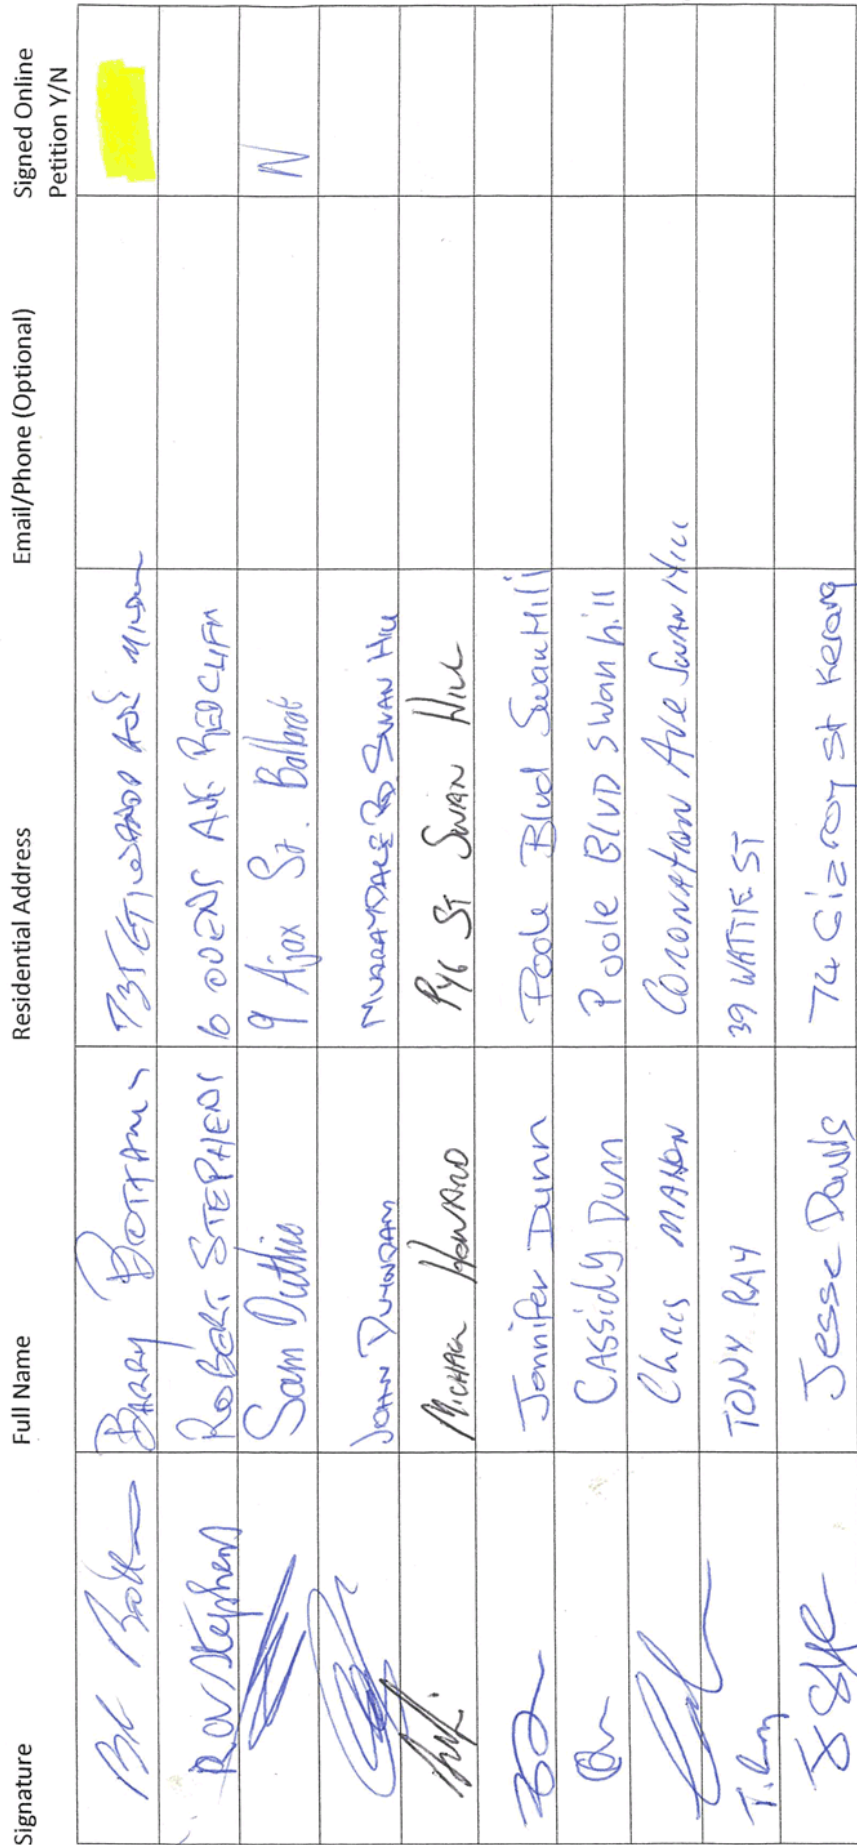 Signature Full Name Residential Address Email/Phone (Optional) Signed Online Petition Y/N
BARRY
R Stephens ROBERT STEPHENS AV. REDCLIFFS
Sam Duthie 9 Ajax St. Ballarat N
JOHN MURRAYDALE RD SWAN HILL
MICHAEL HOWARD PYE ST SWAN HILL
Jennifer Dunn Poole Blvd Swan Hill
CASSIDY Dunn Poole BLVD Swan hill
Chris MAHON CORONATION AVE SWAN HILL
T. Ray TONY RAY 39 WATTIE ST
Jesse Davis 74 St Kerang